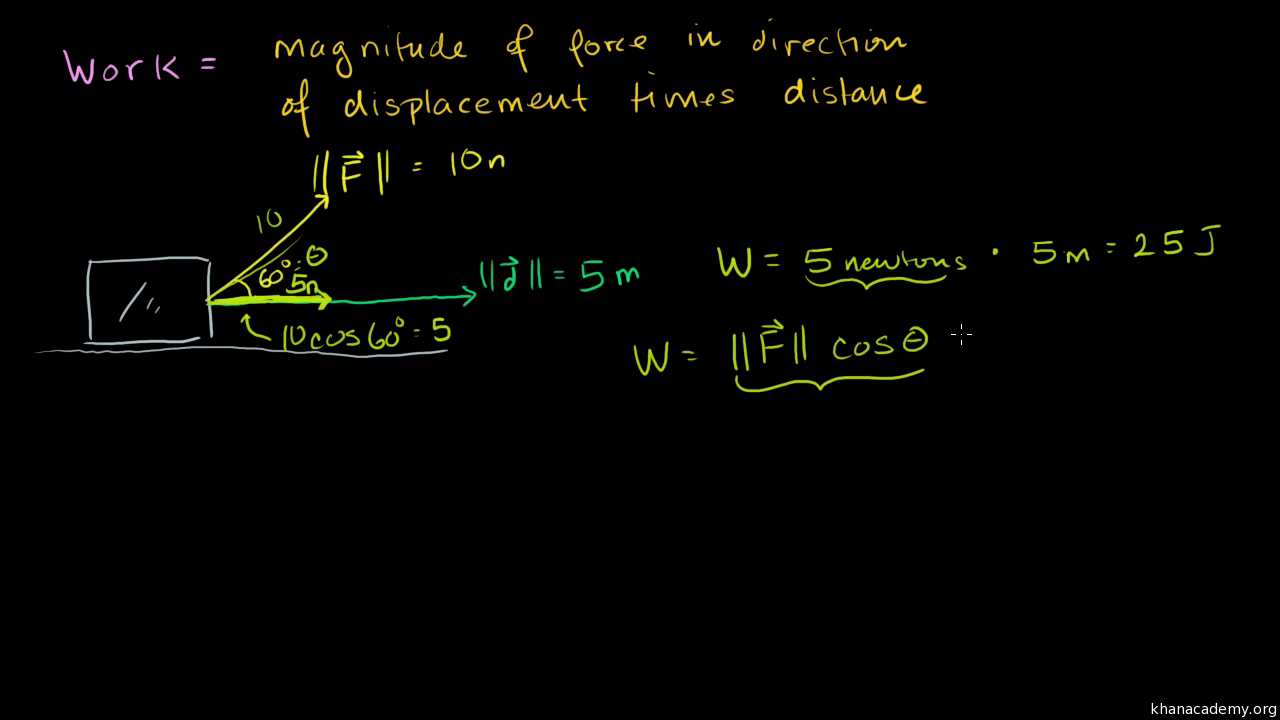 Work = magnitude of force in direction
of displacement times distance
||F⃗|| = 10n
10
60° = θ
5n
||d⃗|| = 5 m
10cos60° = 5
W = 5 newtons · 5m = 25 J
W = ||F⃗|| cos θ
khanacademy.org